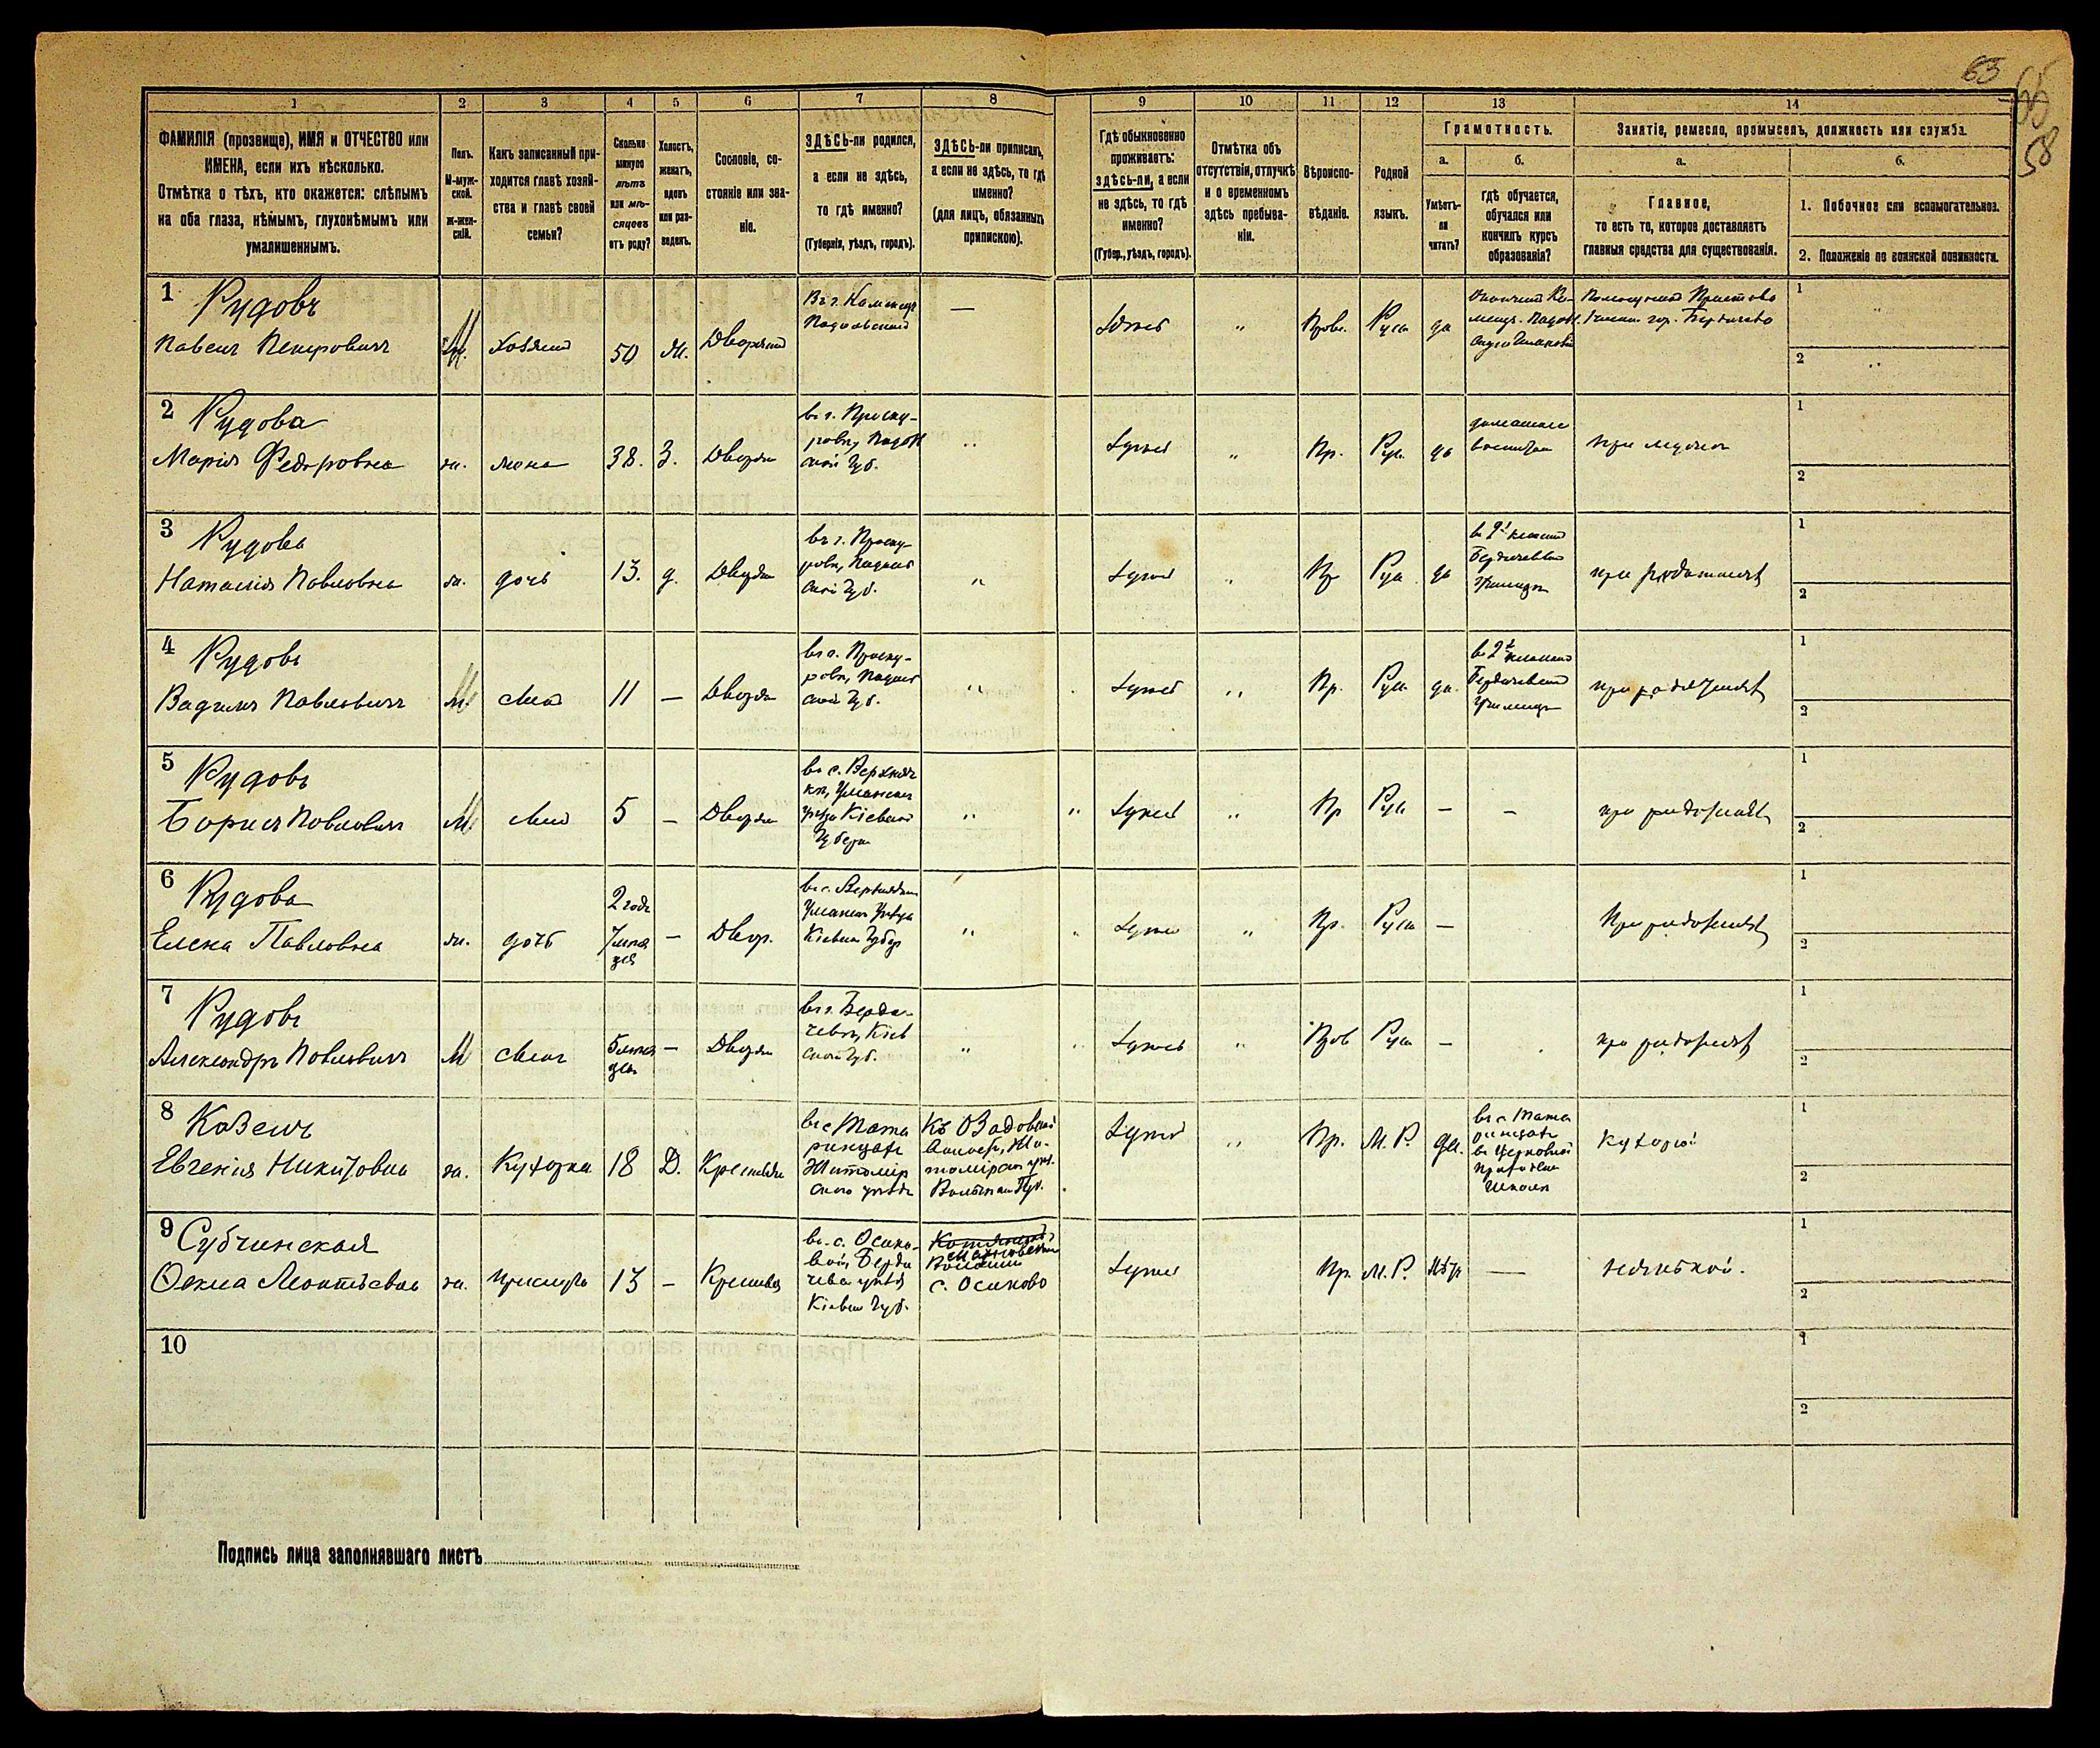 63
65
58
1
2
3
4
5
6
7
8
9
10
11
12
13
14
ФАМИЛІЯ (прозвище), ИМЯ и ОТЧЕСТВО или
ИМЕНА, если ихъ нѣсколько.
Отмѣтка о тѣхъ, кто окажется: слѣпымъ
на оба глаза, нѣмымъ, глухонѣмымъ или
умалишеннымъ.
Полъ.
М-муж-
ской.
Ж-жен-
скій.
Какъ записанный при-
ходится главѣ хозяй-
ства и главѣ своей
семьи?
Сколько
минуло
лѣтъ
или мѣ-
сяцевъ
отъ роду?
Холостъ,
женатъ,
вдовъ
или раз-
веденъ.
Сословіе, со-
стояніе или зва-
ніе.
ЗДѢСЬ-ли родился,
а если не здѣсь,
то гдѣ именно?
(Губернія, уѣздъ, городъ).
ЗДѢСЬ-ли приписанъ,
а если не здѣсь, то гдѣ
именно?
(для лицъ, обязанныхъ
припискою).
Гдѣ обыкновенно
проживаетъ:
здѣсь-ли, а если
не здѣсь, то гдѣ
именно?
(Губер., уѣздъ, городъ).
Отмѣтка объ
отсутствіи, отлучкѣ
и о временномъ
здѣсь пребыва-
ніи.
Вѣроиспо-
вѣданіе.
Родной
языкъ.
Грамотность.
а.
Умѣетъ-
ли
читать?
б.
гдѣ обучается,
обучался или
кончилъ курсъ
образованія?
Занятіе, ремесло, промыселъ, должность или служба.
а.
Главное,
то есть то, которое доставляетъ
главныя средства для существованія.
б.
1. Побочное или вспомогательное.
2. Положеніе по воинской повинности.
1 Рудовъ
Павелъ Петровичъ
М. Хозяинъ 50 Ж. Дворянинъ
Въ г. Каменецъ
Подольскій
— Здѣсь " Прав. Русск да
Помощникъ Пристава
гор. Бердичева
1
2
2 Рудова
Марія Федоровна
ж. жена 38. З. Дворян
въ г. Проску-
ровѣ, Подол
ской Губ.
" Здѣсь " Пр. Рус. да
домашнее
воспитан
при мужѣ
1
2
3 Рудова
Наталія Павловна
ж. дочь 13. д. Дворян
въ г. Проску-
ровѣ, Подоль
ской Губ.
" Здѣсь " Пр Рус да
Бердичевскомъ
училищѣ
при родителяхъ
1
2
4 Рудовъ
Вадимъ Павловичъ
М. сынъ 11 — Дворян
въ г. Проску-
ровѣ, Подольс
ской Губ.
" Здѣсь " Пр. Рус. да
въ 2 классномъ
Бердичевскомъ
училищѣ
при родителяхъ
1
2
5 Рудовъ
Борисъ Павлович
М. сынъ 5 — Дворян
въ с. Верхняч
кѣ, Уманска
уѣзда Кіевской
Губерн
" " Здѣсь " Пр Рус — —
при родителяхъ
1
2
6 Рудова
Елена Павловна
ж. дочь
2 года
7 мѣся
цев
— Двор.
Уманск Уѣзда
Кіевск Губер
" Здѣсь " Пр. Русс —
При родителяхъ
1
2
7 Рудовъ
Александръ Павловичъ
М сынъ
5 мѣся
цев
— Дворян
въ г. Берди-
чевѣ, Кіев
ской Губ.
" Здѣсь " Прав Русс —
при родителяхъ
1
2
8 Козелъ
Евгенія Никитовна
ж. Кухарка 18 Д. Крестьян
Житомір
скаго уѣзда
Волынск Губ.
Здѣсь " Пр. М. Р. да.
въ церковной
приходск
школѣ
Кухарка
1
2
9 Субчинская
Ѳекла Леонтьевна
ж. прислуга 13 — Крестьян
въ с. Осико-
вой, Берди
чева уѣзда
Кіевск Губ.
с. Осиково
Здѣсь Пр. М. Р. Нѣтъ —
нянькой.
1
2
10
1
2
Подпись лица заполнявшаго листъ